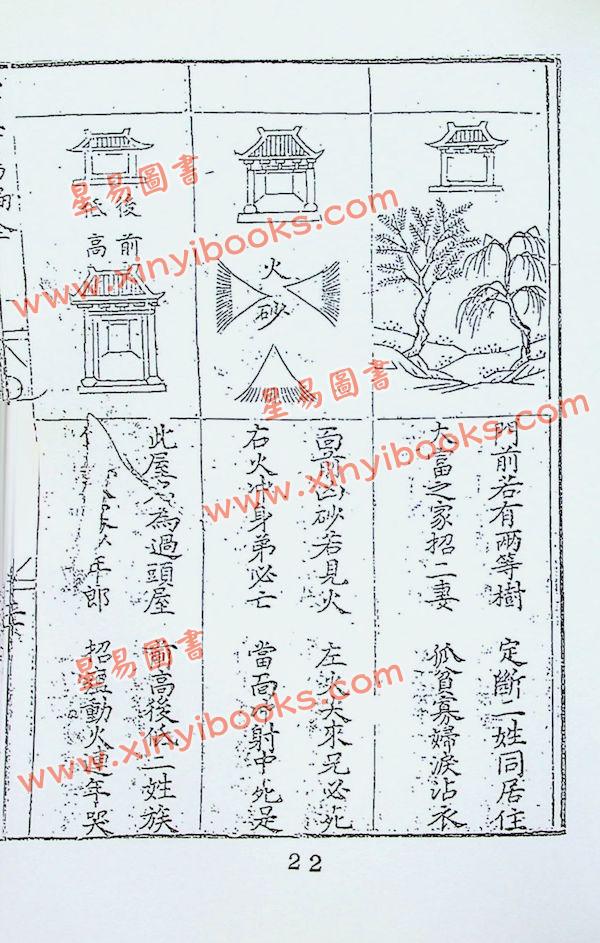 門前若有兩等樹 定斷二姓同居住
大富之家招二妻 孤貧寡婦淚沾衣
火
砂
面前凶砂若見火 左火尖來兄必死
右火冲身弟必亡 當面 射中死是
後低
前高
此屋 為過頭屋 前高後低二姓族
年郎 招瘟動火連年哭
22
星易圖書
www.xinyibooks.com
星易圖書
www.xinyibooks.com
星易圖書
www.xinyibooks.com